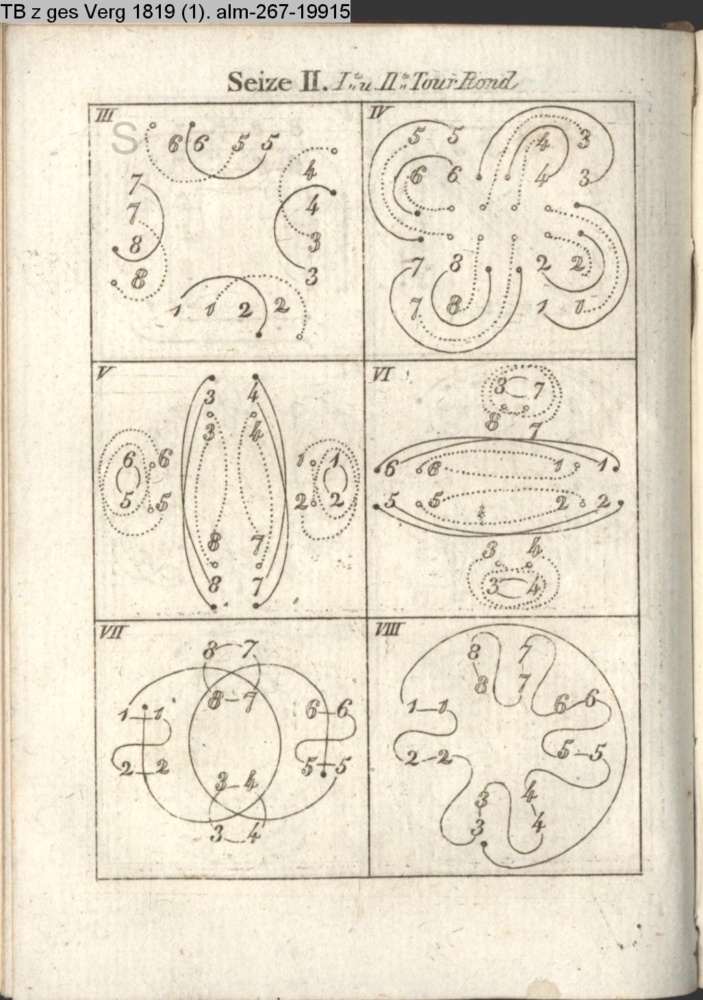 TB z ges Verg 1819 (1). alm-267-19915
Seize II. Iᵗᵉ u IIᵗᵉ Tour Rond
III
S
6 6 5 5
7 4
7 4
8 3
8 3
1 1 2 2
IV
5 5 4 3
6 6 4 3
7 8 2 2
7 8 1 1
V
3 4
3 4
6 6 1 1
5 5 2 2
8 7
8 7
VI
3 7
8 7
6 6 1 1
5 5 2 2
3 4
3 4
VII
8 7
8-7
1-1 6-6
2-2 5-5
3-4
3 4
VIII
8 7
8 7
1-1 6 6
2-2 5-5
3 4
3 4